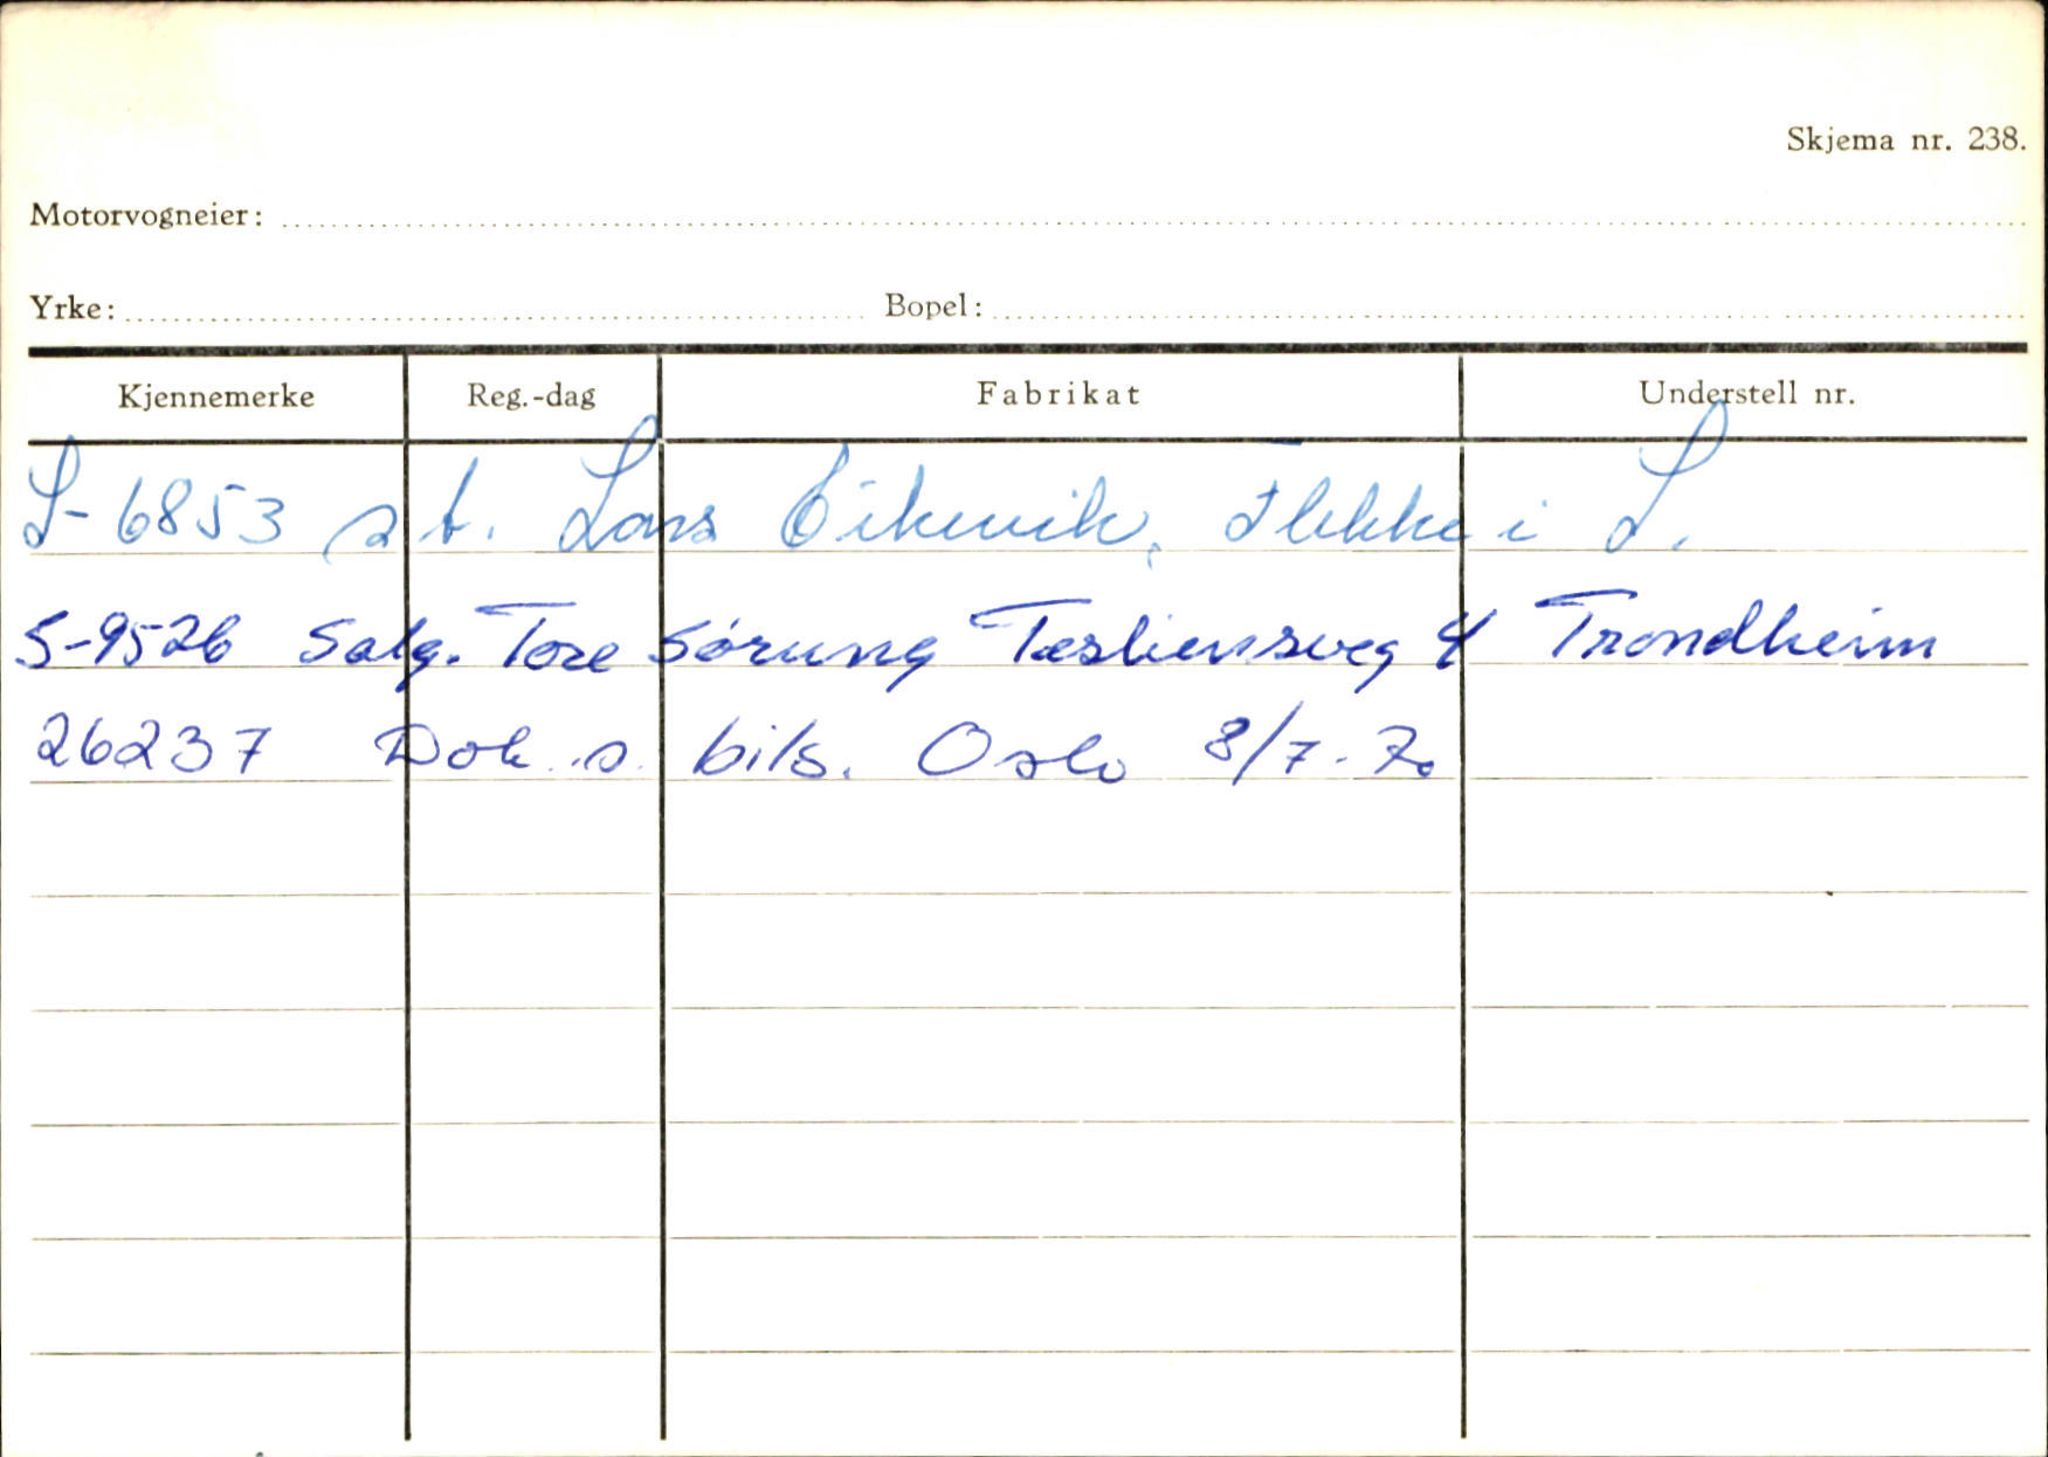 Skjema nr. 238.
Motorvogneier:
Yrke: Bopel:
Kjennemerke Reg.-dag Fabrikat Understell nr.
S-6853 s t. Lars Eikevik, Flekke i S.
S-9526 Salg. Tore Sørung 4 Trondheim
26237 Dok. s. bils. Oslo 8/7-70